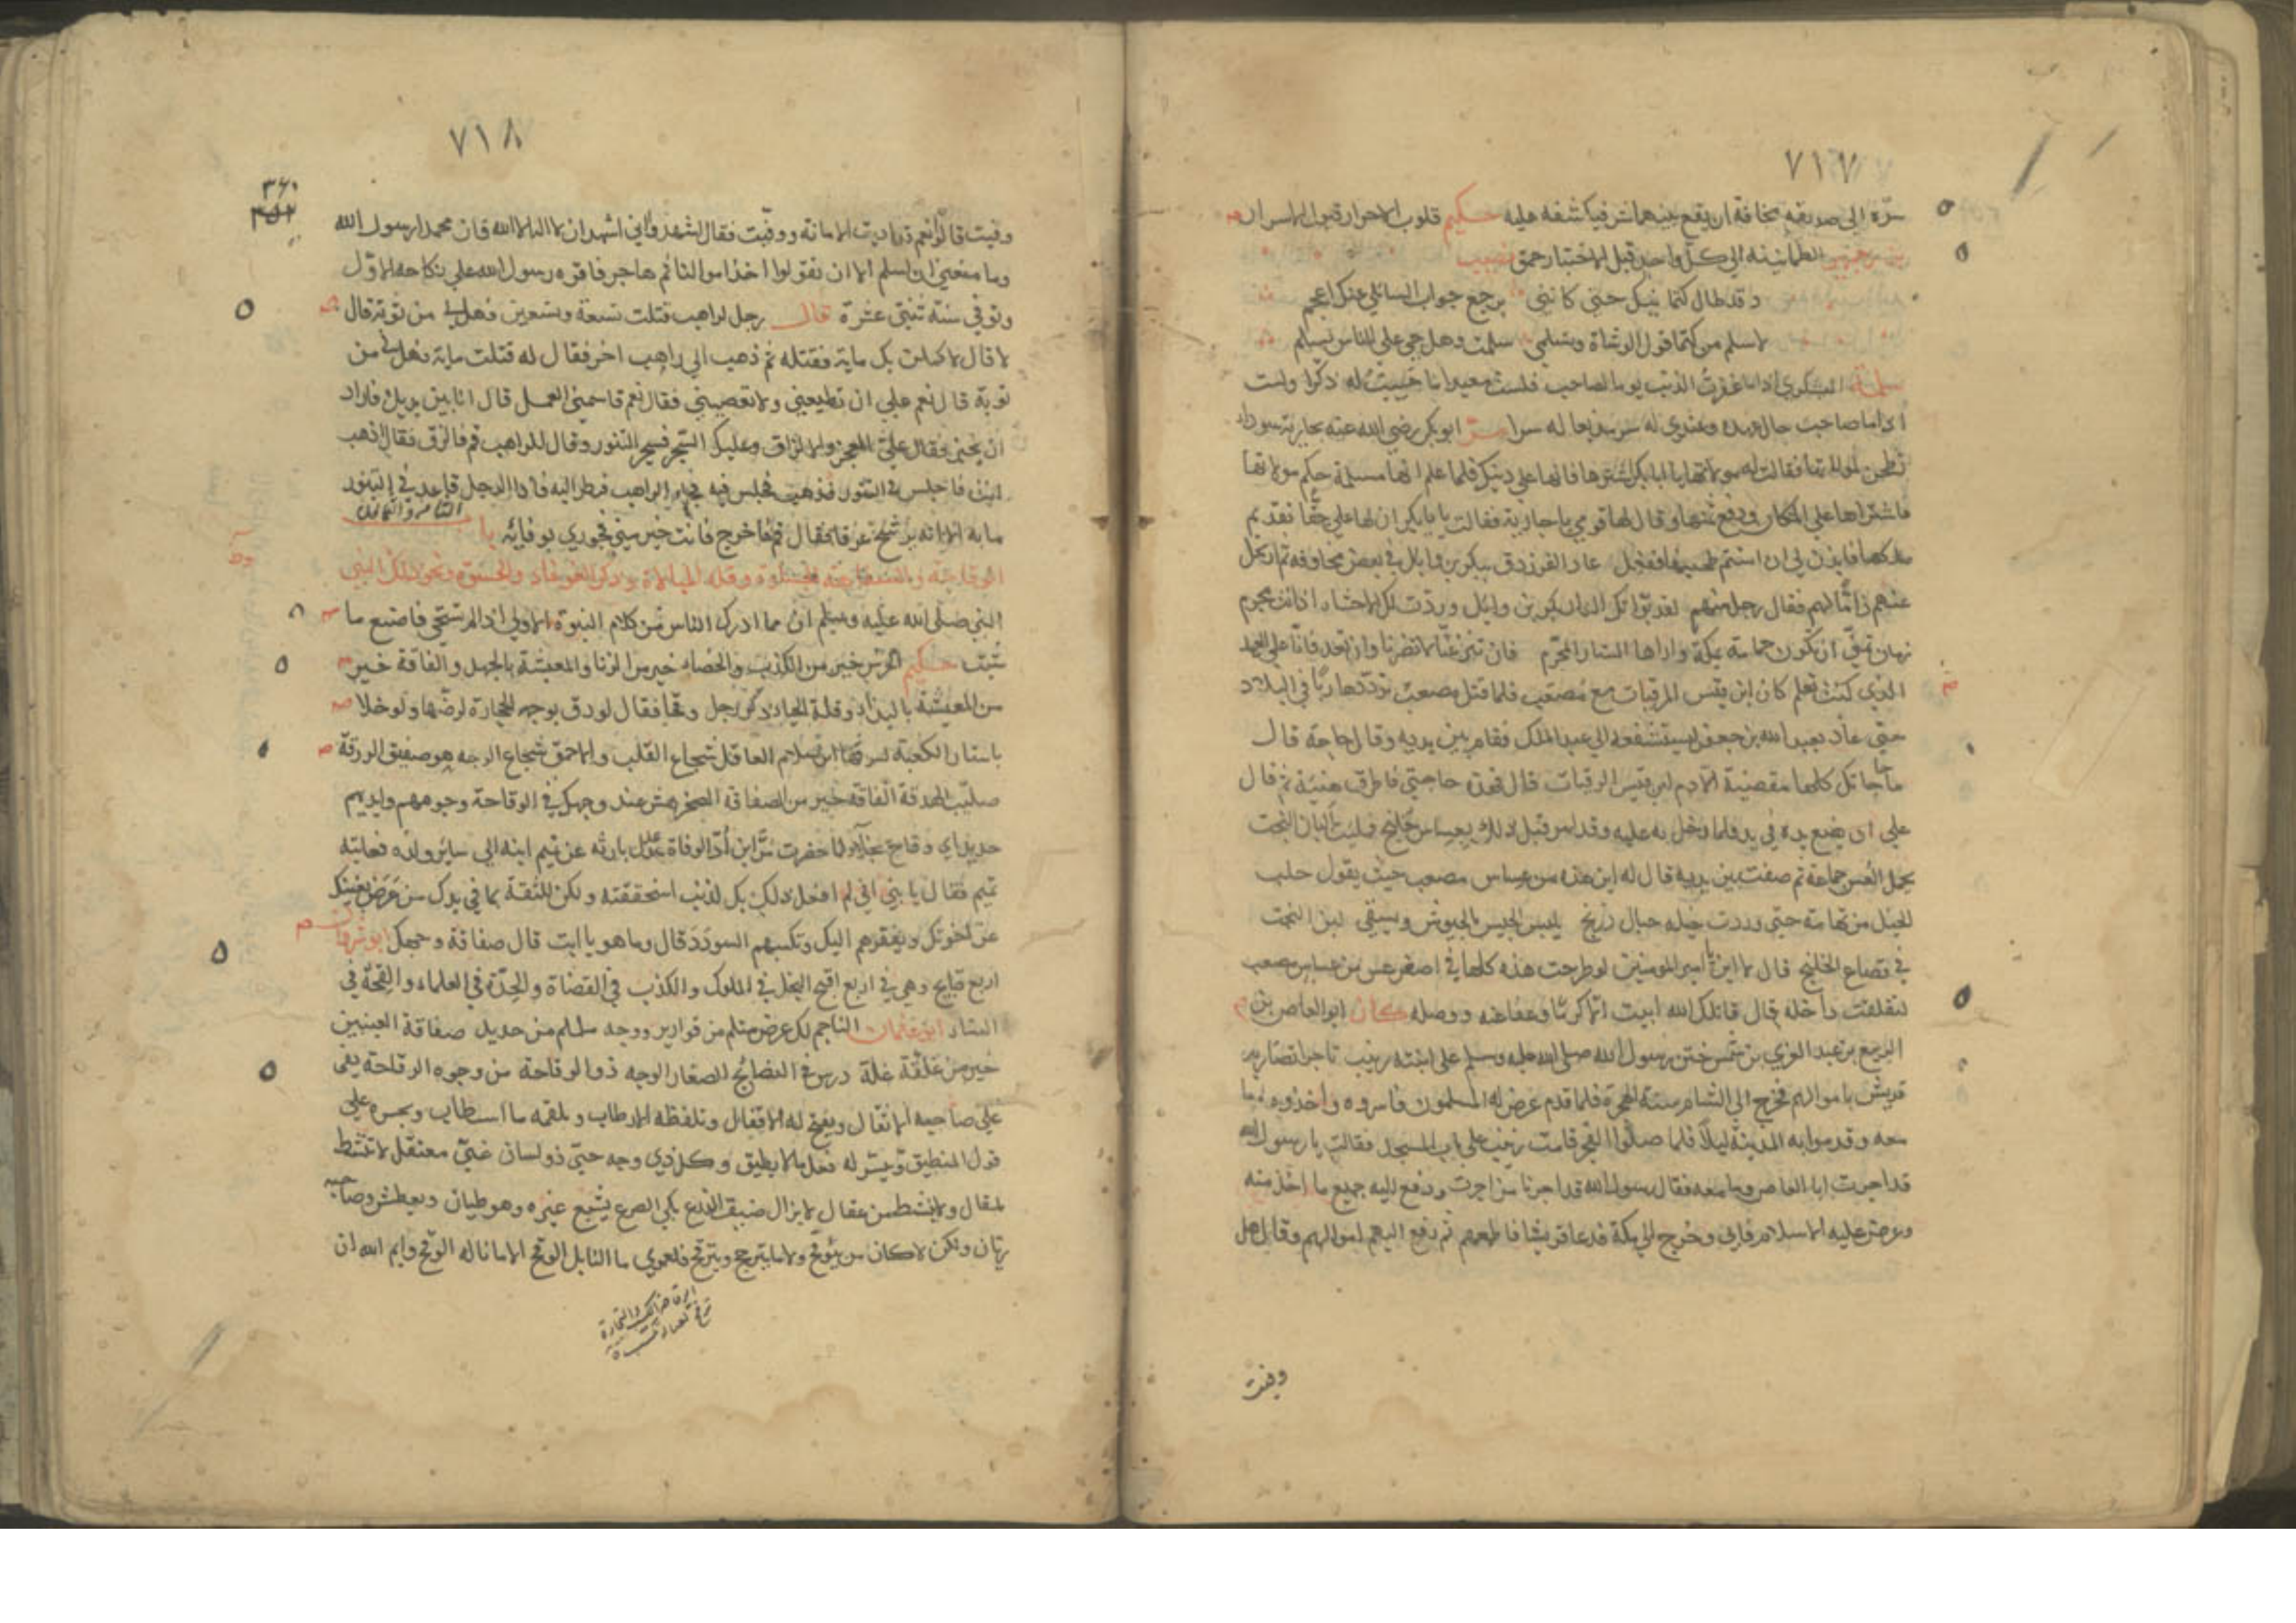 ٧١٧
سره الى صديقه مخافة ان يقع بينهما شر فيكاشفه عليه حكيم قلوب الاحرار قبول الاسرار
الطمانينة الي كل واحد قبل الاختبار حمق نصيب
وقد طال كتمانيك حتى كانني برجع جواب السائلي عنك اعجم
لاسلم من كتما قول الوشاة وتسلمي سلمت وهل حي على الناس يسلم
السكوي اذا ما غفرت الذنب يوما لصاحب فلست معيدا ما حييت له ذكرا ولست
اذا ما صاحب حال عهده وعندي له سر مذيعا له سرا ابو بكر رضي الله عنه بجارية سودا
تطحن لمولاتها فقالت له مولاتها يا ابا بكر اشترها فانها على دينك فلما علم انها مسلمة حكم مولاتها
فاشتراها على المكان ودفع ثمنها وقال لها قومي يا جارية فقالت يا با بكر ان لها علي حقا بقديم
ملكها فايذن لي ان استتم طحينها ففعل عاذ الفرزدق ببكر بن وايل في بعض مخاوفه ثم ارتحل
عنهم ذاما لهم فقال رجل منهم لقد بواتك الدار بكر بن وايل وردت لك الاحشاء اذ انت مجرم
تمنى ان تكون حمامة بمكة واراها الستار المحرم فان تنا عنا لا تضرنا وان تعد فانا على العهد
الذي كنت تعلم كان ابن قيس الرقيات مع مصعب فلما قتل مصعب تردد هاربا في البلاد
حتى عاذ بعبد الله بن جعفر ليستشفعه الي عبد الملك فقام بين يديه وقال حاجة قال
حاجاتك كلها مقضية الا دم ابن قيس الرقيات قال فهذه حاجتي فاطرق هنية ثم قال
علي ان يضع يده في يدي فلما دخل به عليه وقد امر قبل ذلك بعساس خليج فملئت البان البخت
يحمل العس جماعة ثم صفت بين يديه قال له اين هذه من عساس مصعب حيث يقول جلب
الخيل من تهامة حتى وردت خيله جبال زرنج يلبس الجيش بالجيوش ويسقي لبن البخت
في قصاع الخلنج قال يا امير المومنين لو طرحت هذه كلها في اصغر عس من عساس مصعب
لتقلقت داخله قال قاتلك الله ابيت الا كرما وعفا عنه ووصله كان ابو العاص بن
الربيع بن عبد العزي بن شمس ختن رسول الله صلى الله عليه وسلم على ابنته زينب تاجرا تضاربه
قريش باموالهم فخرج الى الشام سنة الهجرة فلما قدم عرض له المسلمون فاسروه واخذوه ما
معه وقدموا به المدينة ليلا فلما صلوا الفجر قامت زينب على باب المسجد فقالت يا رسول الله
قد اجرت ابا العاص وما معه فقال رسول الله قد اجرنا من اجرت ودفع اليه جميع ما اخذ منه
وعرض عليه الاسلام فابى وخرج الي مكة فدعا قريشا فاطعمهم ثم دفع اليهم اموالهم وقال هل
وفيت
٧١٨
٣٦٠
وفيت قالوا نعم قد اديت الامانة ووفيت فقال اشهدوا اني اشهد ان لا اله الا الله وان محمدا رسول الله
وما منعني ان اسلم الا ان تقولوا اخذ اموالنا ثم هاجر فاقره رسول الله على نكاحه الاول
وتوفي سنة ثنتي عشرة قال رجل لراهب قتلت تسعة وتسعين فهل لي من توبة قال
لا قال لاكملن بك ماية فقتله ثم ذهب الى راهب اخر فقال له قتلت ماية فهل لي من
توبة قال نعم علي ان تطيعني ولا تعصيني فقال نعم قاسمني العمل قال انا بين يديك فاراد
ان يخبز فقال علي العجين والالزاق وعليك السجر فسجر التنور وقال للراهب قم فالزق فقال اذهب
انت فاجلس في التنور فذهب فجلس فيه فجاء الراهب فنظر اليه فاذا الرجل قاعد في التنور
ما به الا انه يرشح عرقا فقال قم فاخرج فانت خير مني فجوري بوفائه باب الثامن والثمانون
الوقاحة والسفاهة وقلة المبالاة وذكر الغوغاء ونحو ذلك النبي
النبي صلى الله عليه وسلم ان مما ادرك الناس من كلام النبوة الاولى اذا لم تستحي فاصنع ما
شئت حكيم الخرس خير من الكذب والخصاء خير من الزنا والمعيشة بالجهل والفاقة خير
من المعيشة بالبذاء وقلة الحياء ذكر رجل وقحا فقال لو دق بوجهه الحجارة لرضها ولو خلا
باستار الكعبة لسرقها ابن سلام العاقل شجاع القلب والاحمق شجاع الوجه هو صفيق الورقة
صليب الحدقة الفاقة خير من الصفاقة الصخر هش عند وجهك في الوقاحة وجوههم وايديهم
حديد اي وقاح بخلاء لما حضرت مر ابن اد الوفاة عدل بارثه عن تميم ابنه الى سائر ولده فعاتبه
تميم فقال يا بني اني لم افعل ذلك بك لذنب استحققته ولكن للثقة بما في يدك من عرض يغنيك
عن اخوتك ويفقرهم اليك وتكسبهم السودد قال وما هو يا ابت قال صفاقة وجهك ابو شروان
اربع قبايح وهي في اربع اقبح البخل في الملوك والكذب في القضاة والحدة في العلماء والقحة في
النساء ابو عثمان الناجم لك عرض مثلم من قوارير ووجه ململم من حديد صفاقة العينين
خير من غلة درس في النصائح الصغار الوجه ذو الوقاحة من وجوه الرقاحة يفي
على صاحبه الانفال ويفتح له الاقفال وتلفظه الارطاب ويلقمه ما استطاب ويجسره على
قول المنطيق وييسر له فعل ما لا يطيق وكل ذي وجه حيي ذو لسان عيي معتقل لا تنشط
لمقال ولا ينشط من عقال لا يزال ضيق الذرع بكي الضرع يشبع غيره وهو طيان ويعطش وصاحبه
ريان ولكن لا كان من يتوقح ولا ما يتربح ويترقح فلعمري ما النايل الوتح الا ما ناله الوقح وايم الله ان